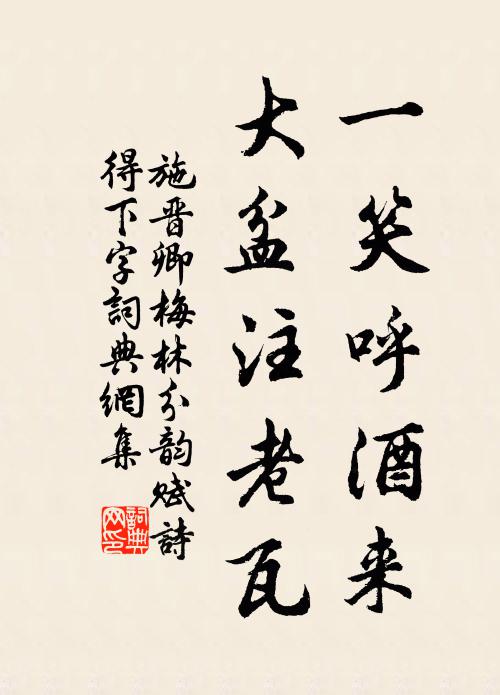 一笑呼酒来
大盆注老瓦
施晋卿梅林分韵赋詩
得下字詞典網集
詞典
网印